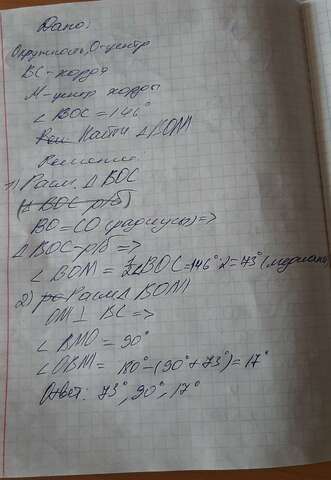 Дано:
Окружность, О-центр
BC-хорда
М-центр хорды
∠BOC=146°
Найти ∠BOM
Решение
1) Расм. △BOC
(△BOC р/б)
BO=CO (радиусы)=>
△BOC-р/б =>
∠BOM = ½∠BOC=146°:2=73° (медиана)
2) Расм △BOM
OM⊥BC =>
∠BMO=90°
∠OBM= 180°-(90°+73°)=17°
Ответ: 73°, 90°, 17°